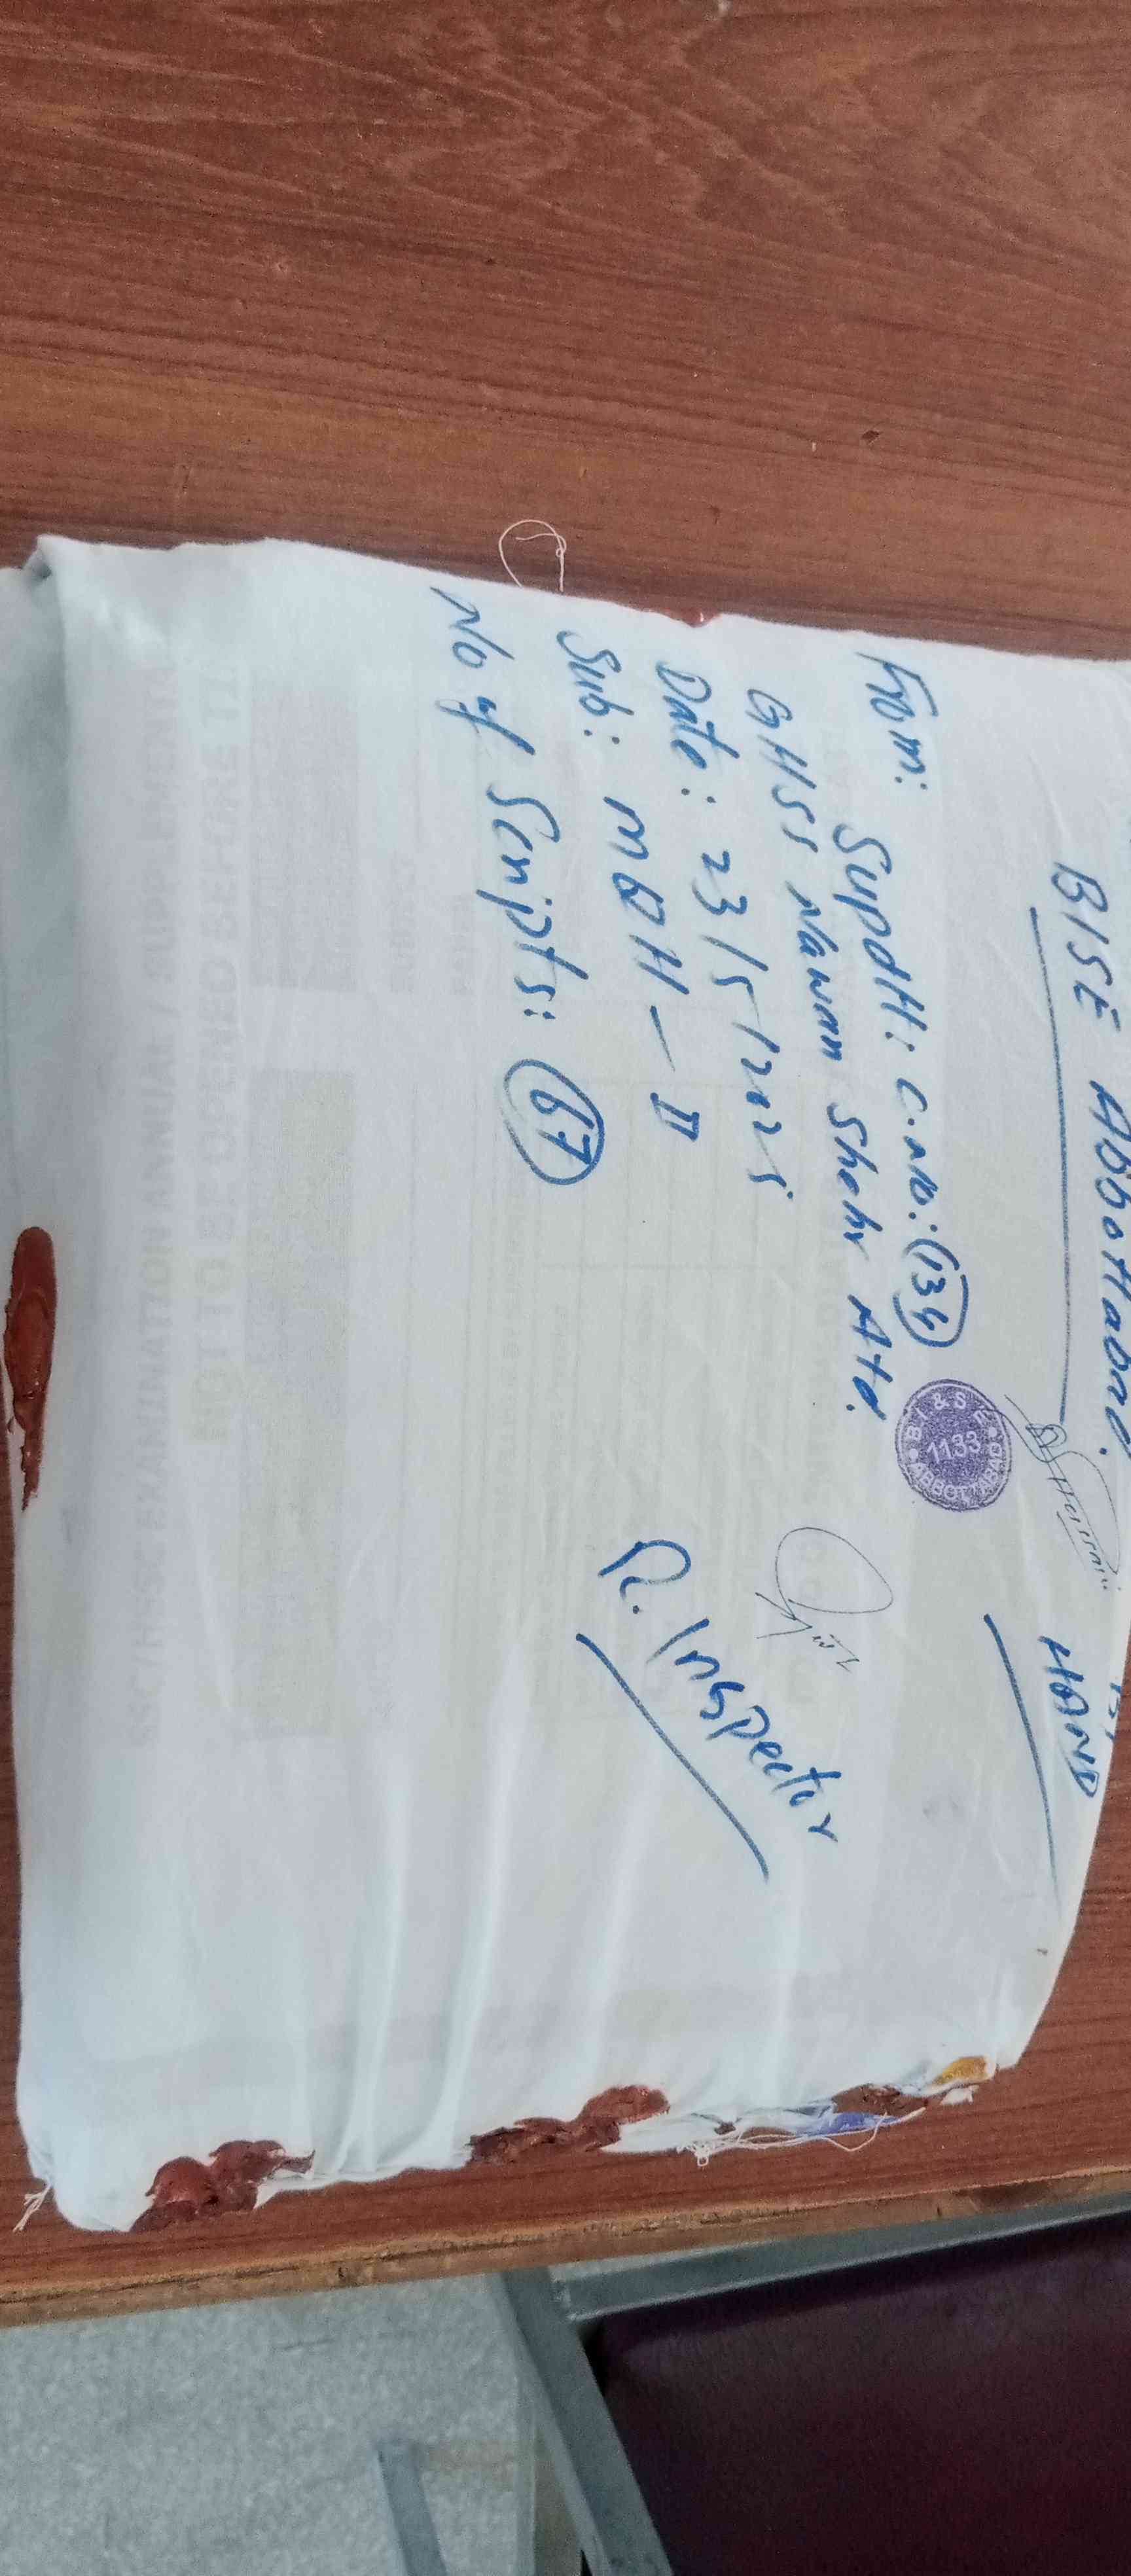 BISE Abbottabad.
BY
HAND
From:
SupdH: C.No: 134
GHSS Nawan Shehr Atd.
Date: 23/5/2025
Sub: MQH-II
No of Scripts: 67
B.I & S.E
1133
ABBOTTABAD
R. Inspector